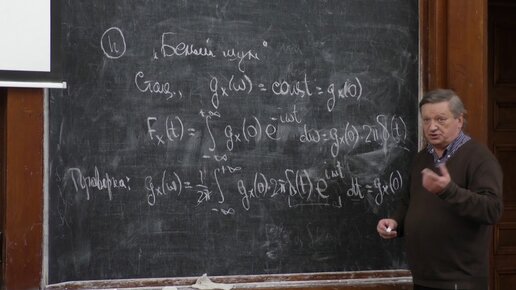 (h) „Белый шум“
Стац., gₓ(ω) = const = gₓ(0)
Fₓ(t) = ∫_{-∞}^{+∞} gₓ(0) e^{-iωt} dω = gₓ(0)·2πδ(t)
Проверка: gₓ(ω) = 1/2π ∫_{-∞}^{+∞} gₓ(0)·2πδ(t) e^{iωt} dt = gₓ(0)